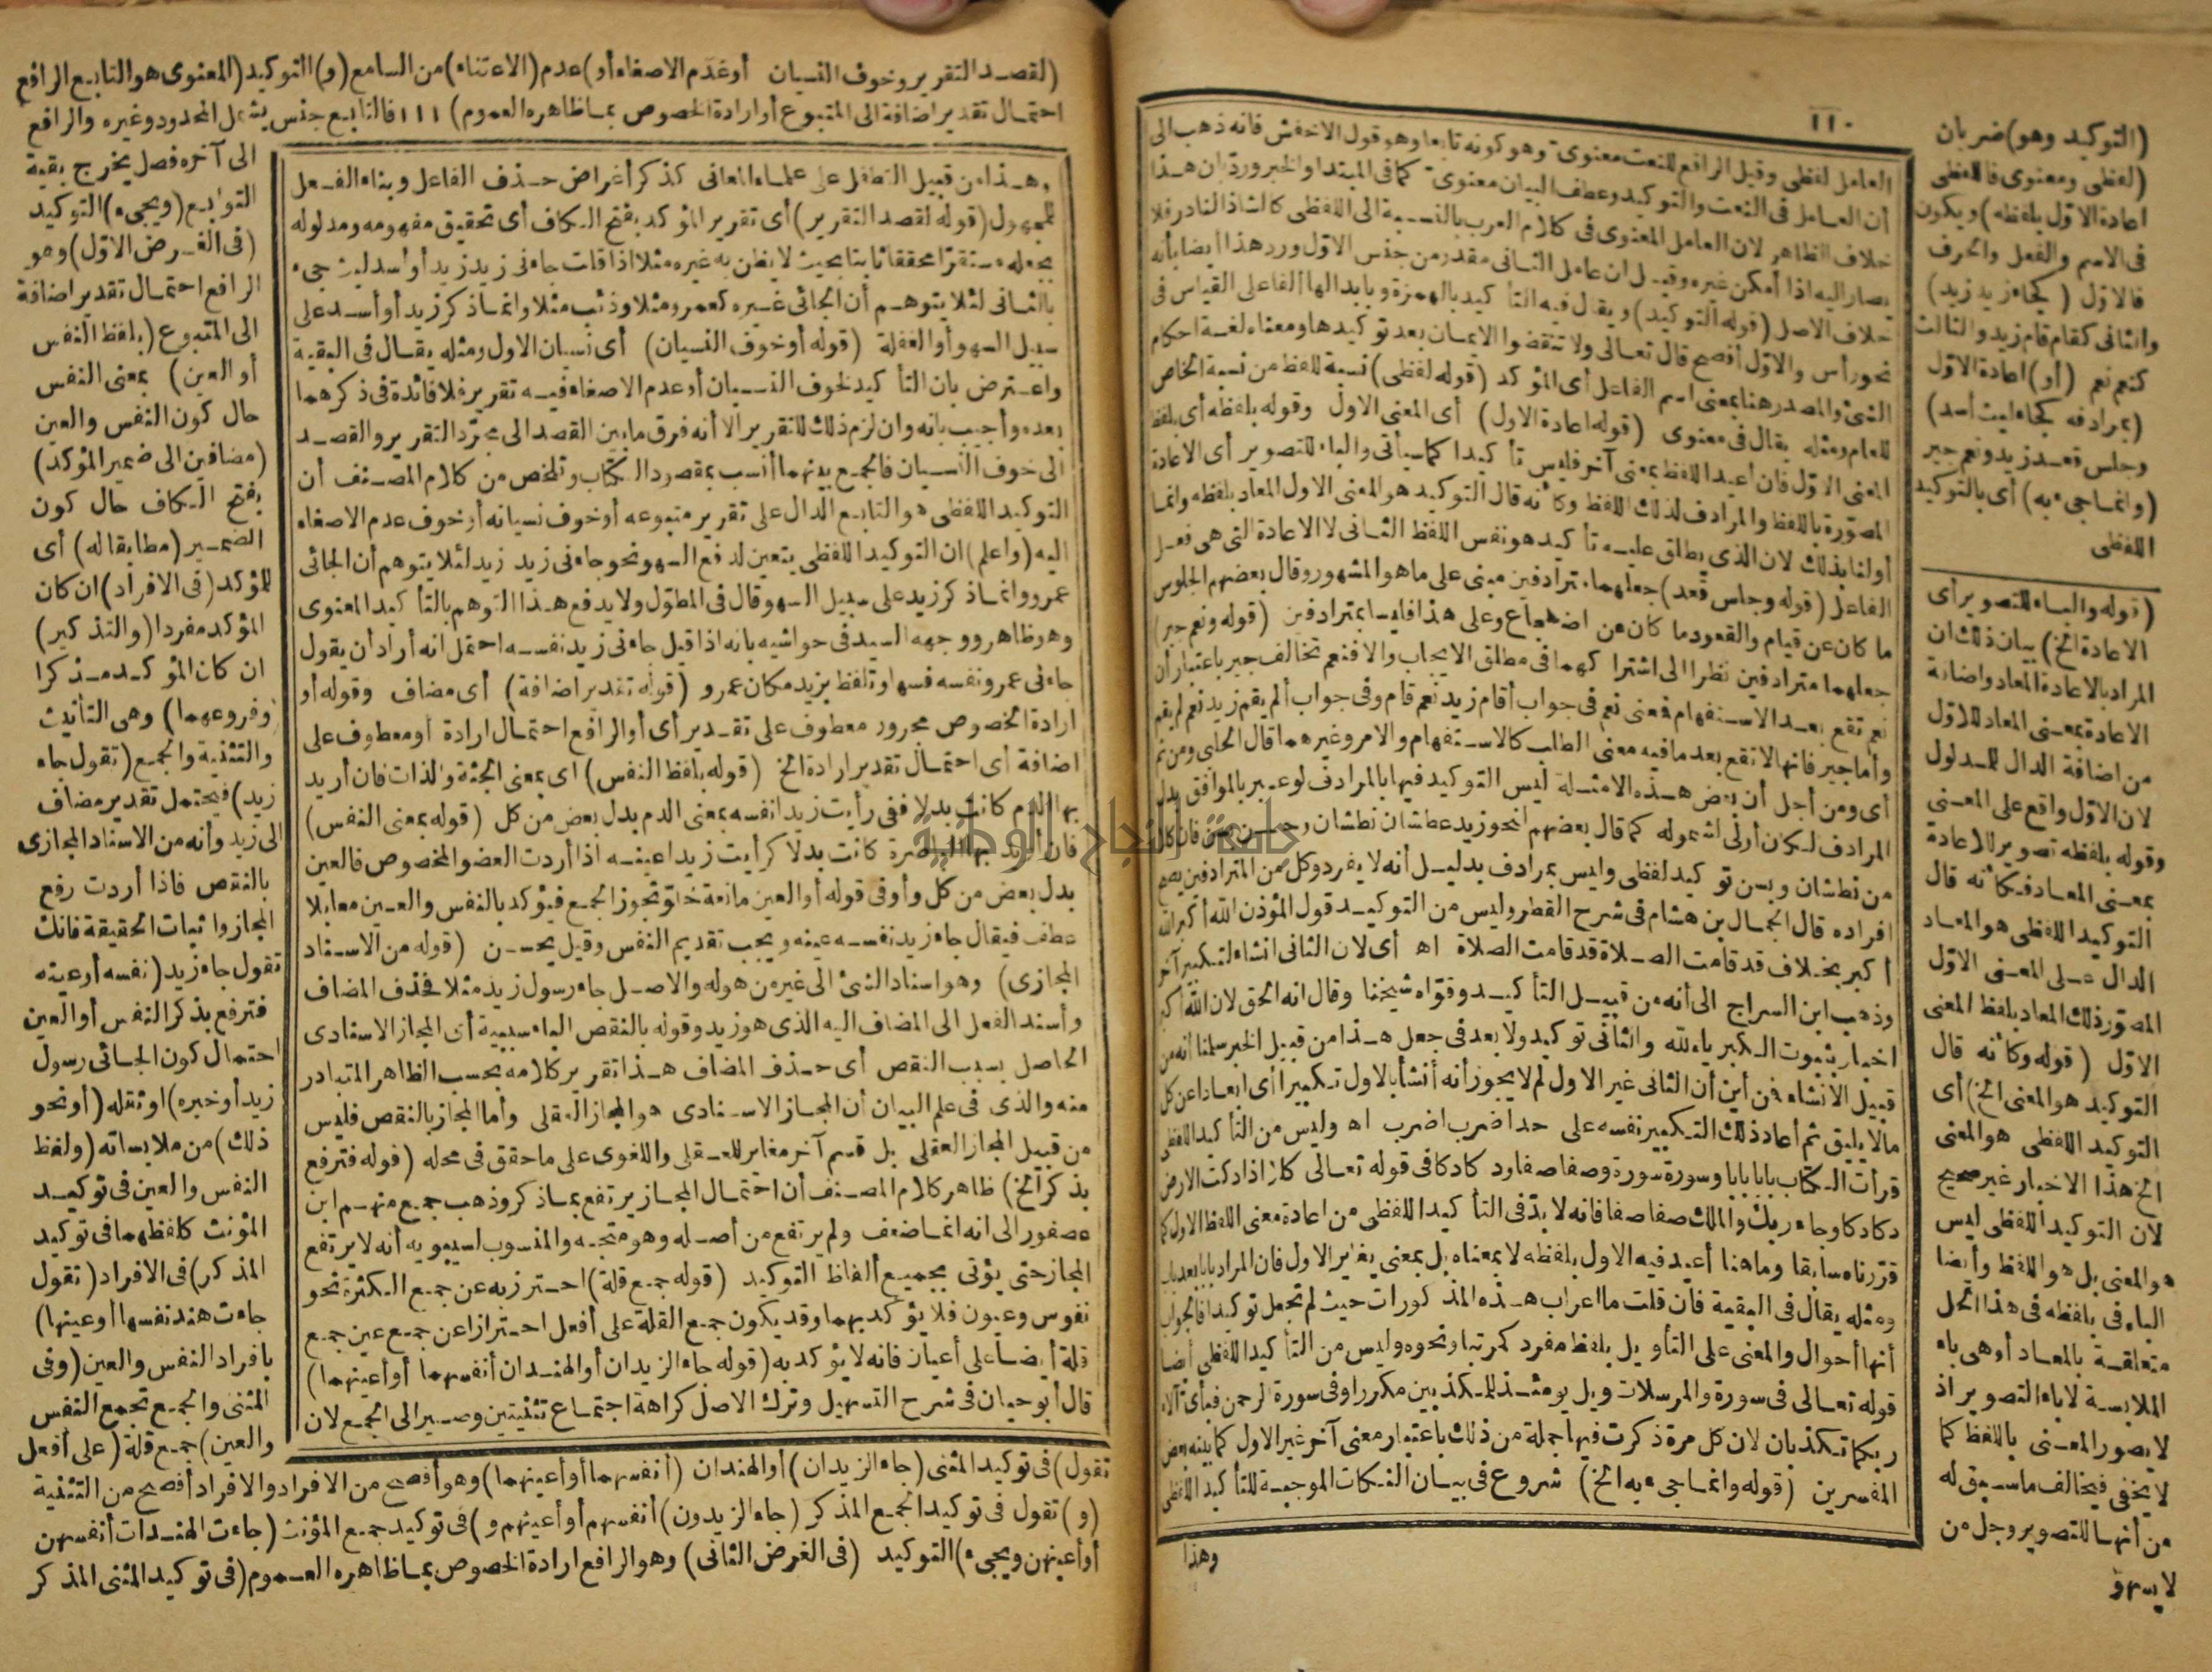 ١١٠
(التوكيد وهو) ضربان
(لفظى ومعنوى فاللفظى
اعادة الاوّل بلفظه) ويكون
فى الاسم والفعل والحرف
فالاوّل (كجاء زيد زيد)
والثانى كقام قام زيد والثالث
كنعم نعم (أو) اعادة الاوّل
(بمرادفه كجاء ليث أسد)
وجلس قعد زيد ونعم جير
(وانما جىء به) أى بالتوكيد
اللفظى
(قوله والباء للتصوير أى
الاعادة الخ) بيان ذلك ان
المراد بالاعادة المعاد واضافة
الاعادة بمعنى المعاد للاوّل
من اضافة الدال للمدلول
لان الاوّل واقع على المعنى
وقوله بلفظه تصوير للاعادة
بمعنى المعاد فكأنه قال
التوكيد اللفظى هو المعاد
الدال على المعنى الاوّل
المصوّر ذلك المعاد بلفظ المعنى
الاوّل (قوله وكأنه قال
التوكيد هو المعنى الخ) أى
التوكيد اللفظى هو المعنى
الخ هذا الاخبار غير صحيح
لان التوكيد اللفظى ليس
هو المعنى بل هو اللفظ وأيضا
الباء فى بلفظه فى هذا الحل
متعلقة بالمعاد أو هى باء
الملابسة لا باء التصوير اذ
لا يصور المعنى باللفظ كما
لا يخفى فيخالف ما سبق له
من أنها للتصوير وجل من
لا يسهو
العامل لفظى وقيل الرافع للنعت معنوى وهو كونه تابعا وهو قول الاخفش فانه ذهب الى
أن العامل فى النعت والتوكيد وعطف البيان معنوى كما فى المبتدا والخبر وردّ بان هذا
خلاف الظاهر لان العامل المعنوى فى كلام العرب بالنسبة الى اللفظى كالشاذ النادر فلا
يصار اليه اذا أمكن غيره وقيل ان عامل الثانى مقدر من جنس الاوّل ورد هذا أيضا بأنه
خلاف الاصل (قوله التوكيد) ويقال فيه التأكيد بالهمزة وبابدالها ألفا على القياس فى
نحو رأس والاوّل أفصح قال تعالى ولا تنقضوا الايمان بعد توكيدها ومعناه لغة احكام
الشئ والمصدر هنا بمعنى اسم الفاعل أى المؤكد (قوله لفظى) نسبة للفظ من نسبة الخاص
للعام ومثله يقال فى معنوى (قوله اعادة الاول) أى المعنى الاول وقوله بلفظه أى بلفظ
المعنى الاوّل فان اعيد اللفظ بمعنى آخر فليس تأكيدا كما سيأتى والباء للتصوير أى الاعادة
المصوّرة باللفظ والمرادف لذلك اللفظ وكأنه قال التوكيد هو المعنى الاول المعاد بلفظه وانما
أولنا بذلك لان الذى يطلق عليه تأكيد هو نفس اللفظ الثانى لا الاعادة التى هى فعل
الفاعل (قوله وجلس قعد) جعلهما مترادفين مبنى على ما هو المشهور وقال بعضهم الجلوس
ما كان عن قيام والقعود ما كان عن اضطجاع وعلى هذا فليسا بمترادفين (قوله ونعم جير)
جعلهما مترادفين نظرا الى اشتراكهما فى مطلق الايجاب والا فنعم تخالف جير باعتبار أن
نعم تقع بعد الاستفهام فمعنى نعم فى جواب أقام زيد نعم قام وفى جواب ألم يقم زيد نعم لم يقم
وأما جير فانها لا تقع بعد ما فيه معنى الطلب كالاستفهام والامر وغيرهما قال الحلبى ومن ثم
أى ومن أجل أن بعض هذه الامثلة ليس التوكيد فيها بالمرادف لو عبر بالموافق بدل
المرادف لكان أولى لشموله كما قال بعضهم نحو زيد عطشان نطشان وحسن بسن فان كل
من نطشان وبسن توكيد لفظى وليس بمرادف بدليل أنه لا يفرد وكل من المترادفين يصح
افراده قال الجمال بن هشام فى شرح القطر وليس من التوكيد قول المؤذن الله أكبر الله
أكبر بخلاف قد قامت الصلاة قد قامت الصلاة اه أى لان الثانى انشاء لتكبير آخر
وذهب ابن السراج الى أنه من قبيل التأكيد وقوّاه شيخنا وقال انه الحق لان الله أكبر
اخبار بثبوت الكبرياء لله والثانى توكيد ولا بعد فى جعل هذا من قبيل الخبر سلمنا انه من
قبيل الانشاء فمن أين أن الثانى غير الاول لم لا يجوز أنه أنشأ بالاول تكبيرا أى ابعادا عن كل
مالا يليق ثم أعاد ذلك التكبير نفسه على حد اضرب اضرب اه وليس من التأكيد اللفظى
قرأت الكتاب بابا بابا وسورة سورة وصفا صفا ودكا دكا فى قوله تعالى كلا اذا دكت الارض
دكا دكا وجاء ربك والملك صفا صفا فانه لا بدّ فى التأكيد اللفظى من اعادة معنى اللفظ الاول كما
قرّرناه سابقا وما هنا أعيد فيه الاول بلفظه لا بمعناه بل بمعنى يغاير الاول فان المراد بابا بعد باب
ومثله يقال فى البقية فان قلت ما اعراب هذه المذكورات حيث لم تجعل توكيدا فالجواب
أنها أحوال والمعنى على التأويل بلفظ مفرد كمرتبا ونحوه وليس من التأكيد اللفظى أيضا
قوله تعالى فى سورة والمرسلات ويل يومئذ للمكذبين مكررا وفى سورة الرحمن فبأى آلاء
ربكما تكذبان لان كل مرة ذكرت فيها جملة من ذلك باعتبار معنى آخر غير الاول كما بينه بعض
المفسرين (قوله وانما جىء به الخ) شروع فى بيان النكات الموجبة للتأكيد اللفظى
وهذا
(لقصد التقرير وخوف النسيان أو عدم الاصغاء أو) عدم (الاعتناء) من السامع (و) التوكيد (المعنوى هو التابع الرافع
احتمال تقدير اضافة الى المتبوع أو ارادة الخصوص بما ظاهره العموم) ١١١ فالتابع جنس يشمل المحدود وغيره والرافع
الى آخره فصل يخرج بقية
التوابع (ويجىء) التوكيد
(فى الغرض الاوّل) وهو
الرافع احتمال تقدير اضافة
الى المتبوع (بلفظ النفس
أو العين) بمعنى النفس
حال كون النفس والعين
(مضافين الى ضمير المؤكد)
بفتح الكاف حال كون
الضمير (مطابقا له) أى
للمؤكد (فى الافراد) ان كان
المؤكد مفردا (والتذكير)
ان كان المؤكد مذكرا
(وفروعهما) وهى التأنيث
والتثنية والجمع (تقول جاء
زيد) فيحتمل تقدير مضاف
الى زيد وأنه من الاسناد المجازى
بالنقص فاذا أردت رفع
المجاز واثبات الحقيقة فانك
تقول جاء زيد (نفسه أو عينه
فترفع بذكر النفس أو العين
احتمال كون الجائى رسول
زيد أو خبره) او ثقله (أو نحو
ذلك) من ملابساته (ولفظ
النفس والعين فى توكيد
المؤنث كلفظهما فى توكيد
المذكر) فى الافراد (تقول
جاءت هند نفسها أو عينها)
بافراد النفس والعين (وفى
المثنى والجمع تجمع النفس
والعين) جمع قلة (على أفعل
وهذا من قبيل التطفل على علماء المعانى كذكر أغراض حذف الفاعل وبناء الفعل
للمجهول (قوله لقصد التقرير) أى تقرير المؤكد بفتح الكاف أى تحقيق مفهومه ومدلوله
بجعله مستقرّا محققا ثابتا بحيث لا يظن به غيره مثلا اذا قلت جاءنى زيد زيد أو أسد ليث جىء
بالثانى لئلا يتوهم أن الجائى غيره كعمرو مثلا وذئب مثلا وانما ذكر زيد أو أسد على
سبيل السهو أو الغفلة (قوله أو خوف النسيان) أى نسيان الاول ومثله يقال فى البقية
واعترض بان التأكيد لخوف النسيان أو عدم الاصغاء فيه تقرير فلا فائدة فى ذكرهما
بعده وأجيب بانه وان لزم ذلك للتقرير الا أنه فرق ما بين القصد الى مجرّد التقرير والقصد
الى خوف النسيان فالجمع بينهما أنسب بمقصود الكتاب وتلخص من كلام المصنف أن
التوكيد اللفظى هو التابع الدال على تقرير متبوعه أو خوف نسيانه أو خوف عدم الاصغاء
اليه (واعلم) ان التوكيد اللفظى يتعين لدفع السهو نحو جاءنى زيد زيد لئلا يتوهم أن الجائى
عمرو وانما ذكر زيد على سبيل السهو قال فى المطوّل ولا يدفع هذا التوهم بالتأكيد المعنوى
وهو ظاهر ووجهه السيد فى حواشيه بانه اذا قيل جاءنى زيد نفسه احتمل انه أراد أن يقول
جاءنى عمرو نفسه فسها وتلفظ بزيد مكان عمرو (قوله تقدير اضافة) أى مضاف وقوله أو
ارادة الخصوص مجرور معطوف على تقدير أى أو الرافع احتمال ارادة أو معطوف على
اضافة أى احتمال تقدير ارادة الخ (قوله بلفظ النفس) أى بمعنى الجثة والذات فان أريد
بها الدم كانت بدلا ففى رأيت زيدا نفسه بمعنى الدم بدل بعض من كل (قوله بمعنى النفس)
فان أريد بها الباصرة كانت بدلا كرأيت زيدا عينه اذا أردت العضو المخصوص فالعين
بدل بعض من كل وأو فى قوله أو العين مانعة خلوّ تجوز الجمع فيؤكد بالنفس والعين معا بلا
عطف فيقال جاء زيد نفسه عينه ويجب تقديم النفس وقيل يحسن (قوله من الاسناد
المجازى) وهو اسناد الشئ الى غير من هو له والاصل جاء رسول زيد مثلا فحذف المضاف
وأسند الفعل الى المضاف اليه الذى هو زيد وقوله بالنقص الباء سببية أى المجاز الاسنادى
الحاصل بسبب النقص أى حذف المضاف هذا تقرير كلامه بحسب الظاهر المتبادر
منه والذى فى علم البيان أن المجاز الاسنادى هو المجاز العقلى وأما المجاز بالنقص فليس
من قبيل المجاز العقلى بل قسم آخر مغاير للعقلى واللغوى على ما حقق فى محله (قوله فترفع
بذكر الخ) ظاهر كلام المصنف أن احتمال المجاز يرتفع بما ذكر وذهب جمع منهم ابن
عصفور الى انه انما ضعف ولم يرتفع من أصله وهو متجه والمنسوب لسيبويه أنه لا يرتفع
المجاز حتى يؤتى بجميع ألفاظ التوكيد (قوله جمع قلة) احترز به عن جمع الكثرة نحو
نفوس وعيون فلا يؤكد بهما وقد يكون جمع القلة على أفعل احترازا عن جمع عين جمع
قلة أيضا على أعيان فانه لا يؤكد به (قوله جاء الزيدان أو الهندان أنفسهما أو أعينهما)
قال أبو حيان فى شرح التسهيل وترك الاصل كراهة اجتماع تثنيتين وصير الى الجمع لان
تقول) فى توكيد المثنى (جاء الزيدان) أو الهندان (أنفسهما أو أعينهما) وهو أفصح من الافراد والافراد أفصح من التثنية
(و) تقول فى توكيد الجمع المذكر (جاء الزيدون) أنفسهم أو أعينهم و) فى توكيد جمع المؤنث (جاءت الهندات أنفسهن
أو أعينهن ويجىء) التوكيد (فى الغرض الثانى) وهو الرافع ارادة الخصوص بما ظاهره العموم (فى توكيد المثنى المذكر
جامعة النجاح الوطنية